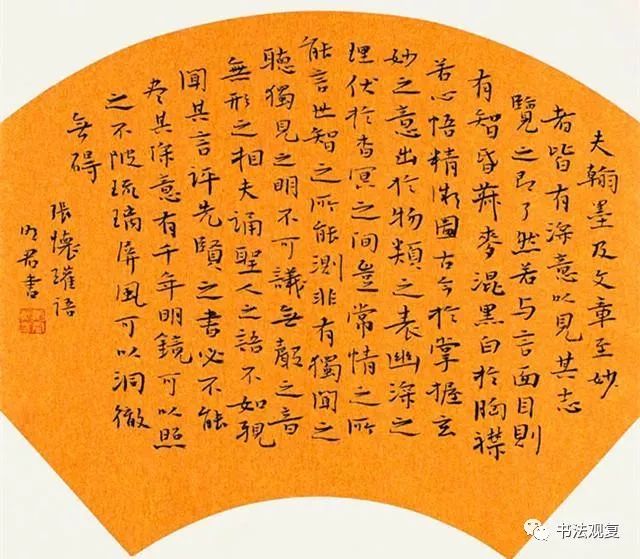 夫翰墨及文章至妙
者皆有深意以見其志
覽之即了然若与言面目則
有智昏菽麥混黑白於胸襟
若心悟精微圖古今於掌握玄
妙之意出於物類之表幽深之
理伏於杳冥之間豈常情之所
能言世智之所能測非有獨聞之
聽獨見之明不可議無聲之音
無形之相夫誦聖人之語不如親
聞其言評先賢之書必不能
盡其深意有千年明鏡可以照
之不陂琉璃屏風可以洞徹
無碍
張懷瓘語
君書
书法观复